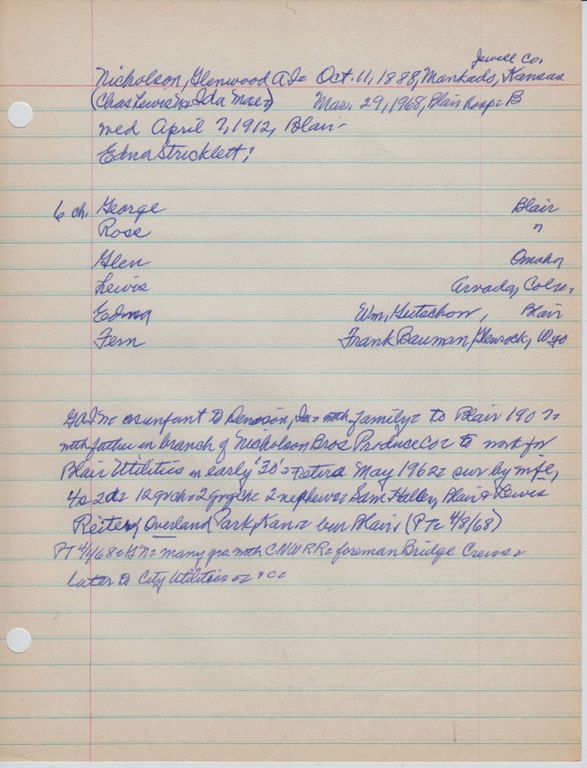 Jewell Co.
Nicholson, Glenwood A = Oct. 11, 1888, Mankado, Kansas
(Chas Lewis Ida Mae =) Mar. 29, 1968, Blair Hosp = B
med April 7, 1912, Blair -
Edna Stricklett;
6 ch. George Blair
Rose "
Glen Omaha
Lewis Arvada, Colo.
Edna Wm. Gutschow, Blair
Fern Frank Bauman, Glenrock, Wyo
as infant to Denison, Ia = with family = to Blair 190
with father in branch of Nicholson Bros Produce Co = to work for
Blair Utilities in early '30's = retired May 1962 = sur by wife,
4s 2d = 12 grch = 2 grgch = 2 nephews = Sam Halley, Blair & Lewis
Reiter, Overland Park, Kan = bur Blair, (PT = 4/8/68)
PT 4/1/68 = = many yrs with CNWRR = foreman Bridge Crews =
Later to City Utilities